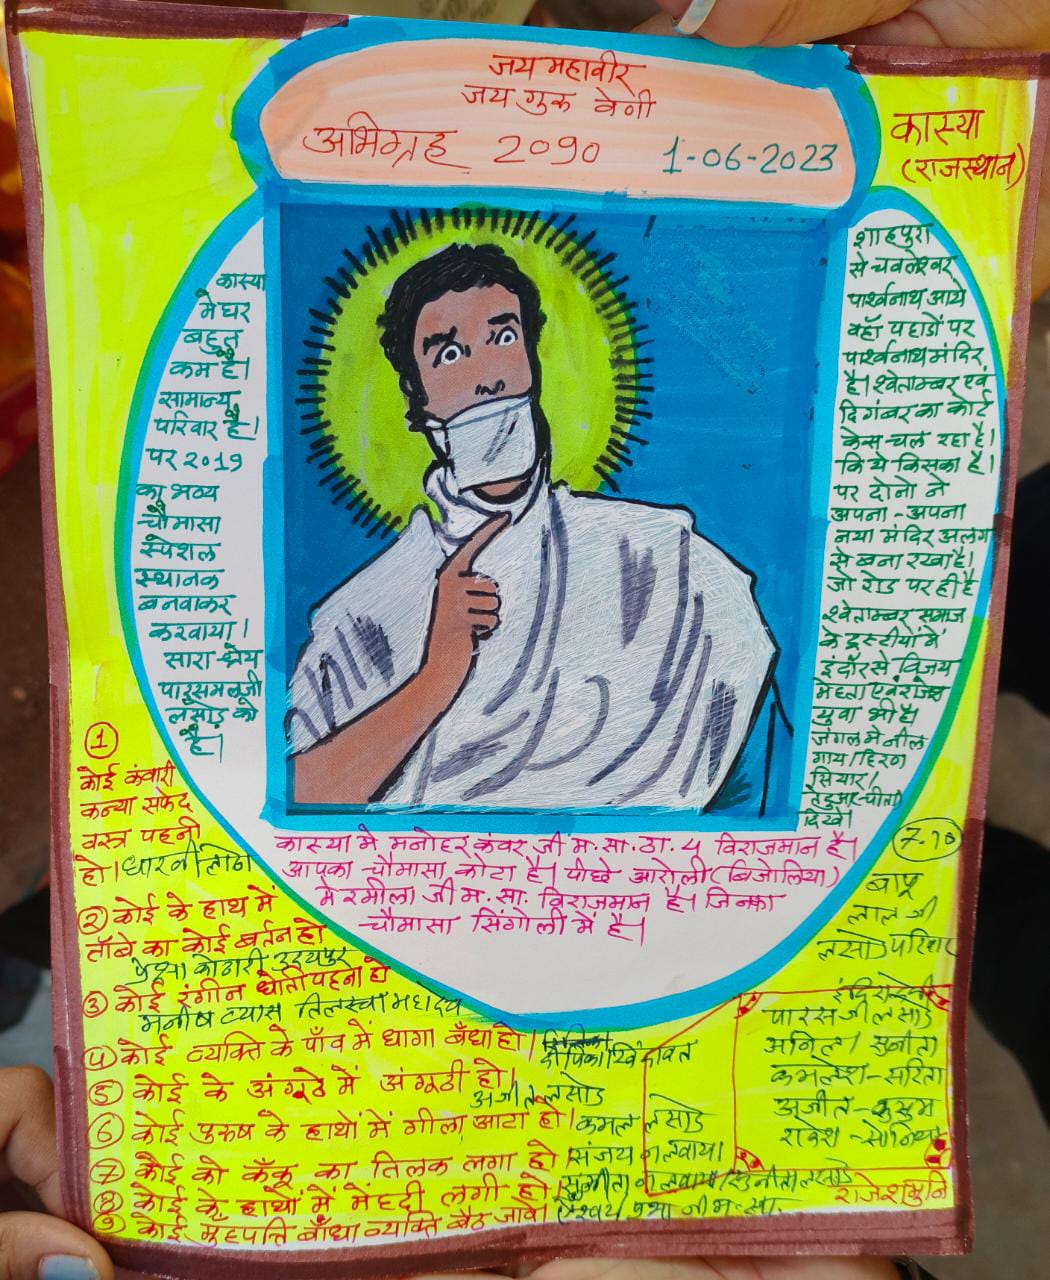 जय महावीर
जय गुरु वेणी
अभिग्रह 2090 1-06-2023
कास्या
(राजस्थान)
कास्या
मे घर
बहुत
कम है।
सामान्य
परिवार है।
पर २०19
का भव्य
चौमासा
स्पेशल
स्थानक
बनवाकर
करवाया।
सारा श्रेय
पारसमलजी
लसोड़ को
है।
शाहपुरा
से चवलेश्वर
पार्श्वनाथ आये
वहाँ पहाडों पर
पार्श्वनाथ मंदिर
है। श्वेताम्बर एवं
दिगंबर का कोर्ट
केस चल रहा है।
कि ये किसका है।
पर दोनो ने
अपना - अपना
नया मंदिर अलग
से बना रखा है।
जो रोड पर ही है
श्वेताम्बर समाज
के ट्रस्टीयों में
इंदौर से विजय
मेहता एवं राजेश
युवा भी है।
जंगल मे नील
गाय/हिरन
सियार।
तेंदुआ-चीता
दिखे।
कास्या मे मनोहर कंवर जी म. सा. ठा. ५ विराजमान है।
आपका चौमासा कोटा है। पीछे आरोली (बिजोलिया)
मे रमीला जी म. सा. विराजमान है। जिनका
चौमासा सिंगोली में है।
①
कोई कंवारी
कन्या सफेद
वस्त्र पहनी
हो।
② कोई के हाथ में
ताँबे का कोई बर्तन हो
कोठारी उदयपुर
③ कोई रंगीन धोती पहना हो
मनीष व्यास तिलस्वा महादेव
४ कोई व्यक्ति के पाँव में धागा बँधा हो।
दीपिका
⑤ कोई के अंगूठे में अंगूठी हो।
अजीत लसोड
⑥ कोई पुरुष के हाथों में गीला आटा हो। कमल लसोड
⑦ कोई को कँकू का तिलक लगा हो। संजय नलवाया।
⑧ कोई के हाथों में मेंहदी लगी हो। सुनीता नलवाया
⑨ कोई मुँहपत्ति बाँधा व्यक्ति बैठ जावे। ऐश्वर्य प्रभा जी म. सा.
7.10
बापू
लाल जी
लसोड परिवार
इंदिरादेवी
पारस जी लसोड
अनिल। सुनीता
कमलेश-सरिता
अजीत-कुसुम
राकेश-सोनिया
राजेश मुनि